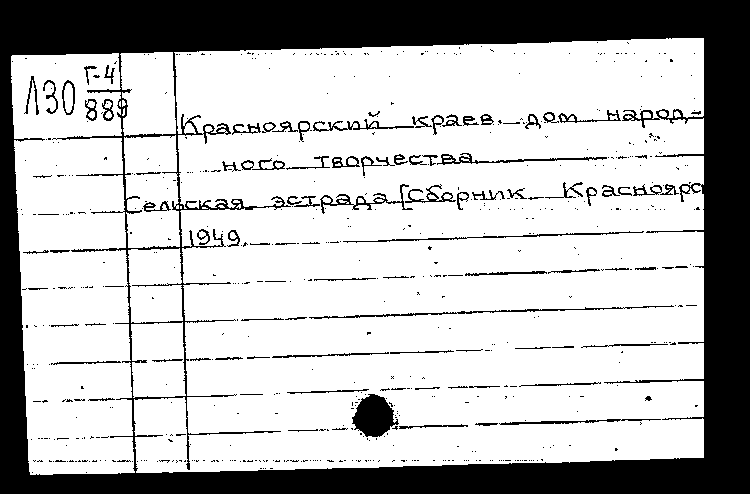 Л30 Г-4
889
Красноярский краев. дом народ-
ного творчества.
Сельская эстрада [Сборник. Краснояро
1949.